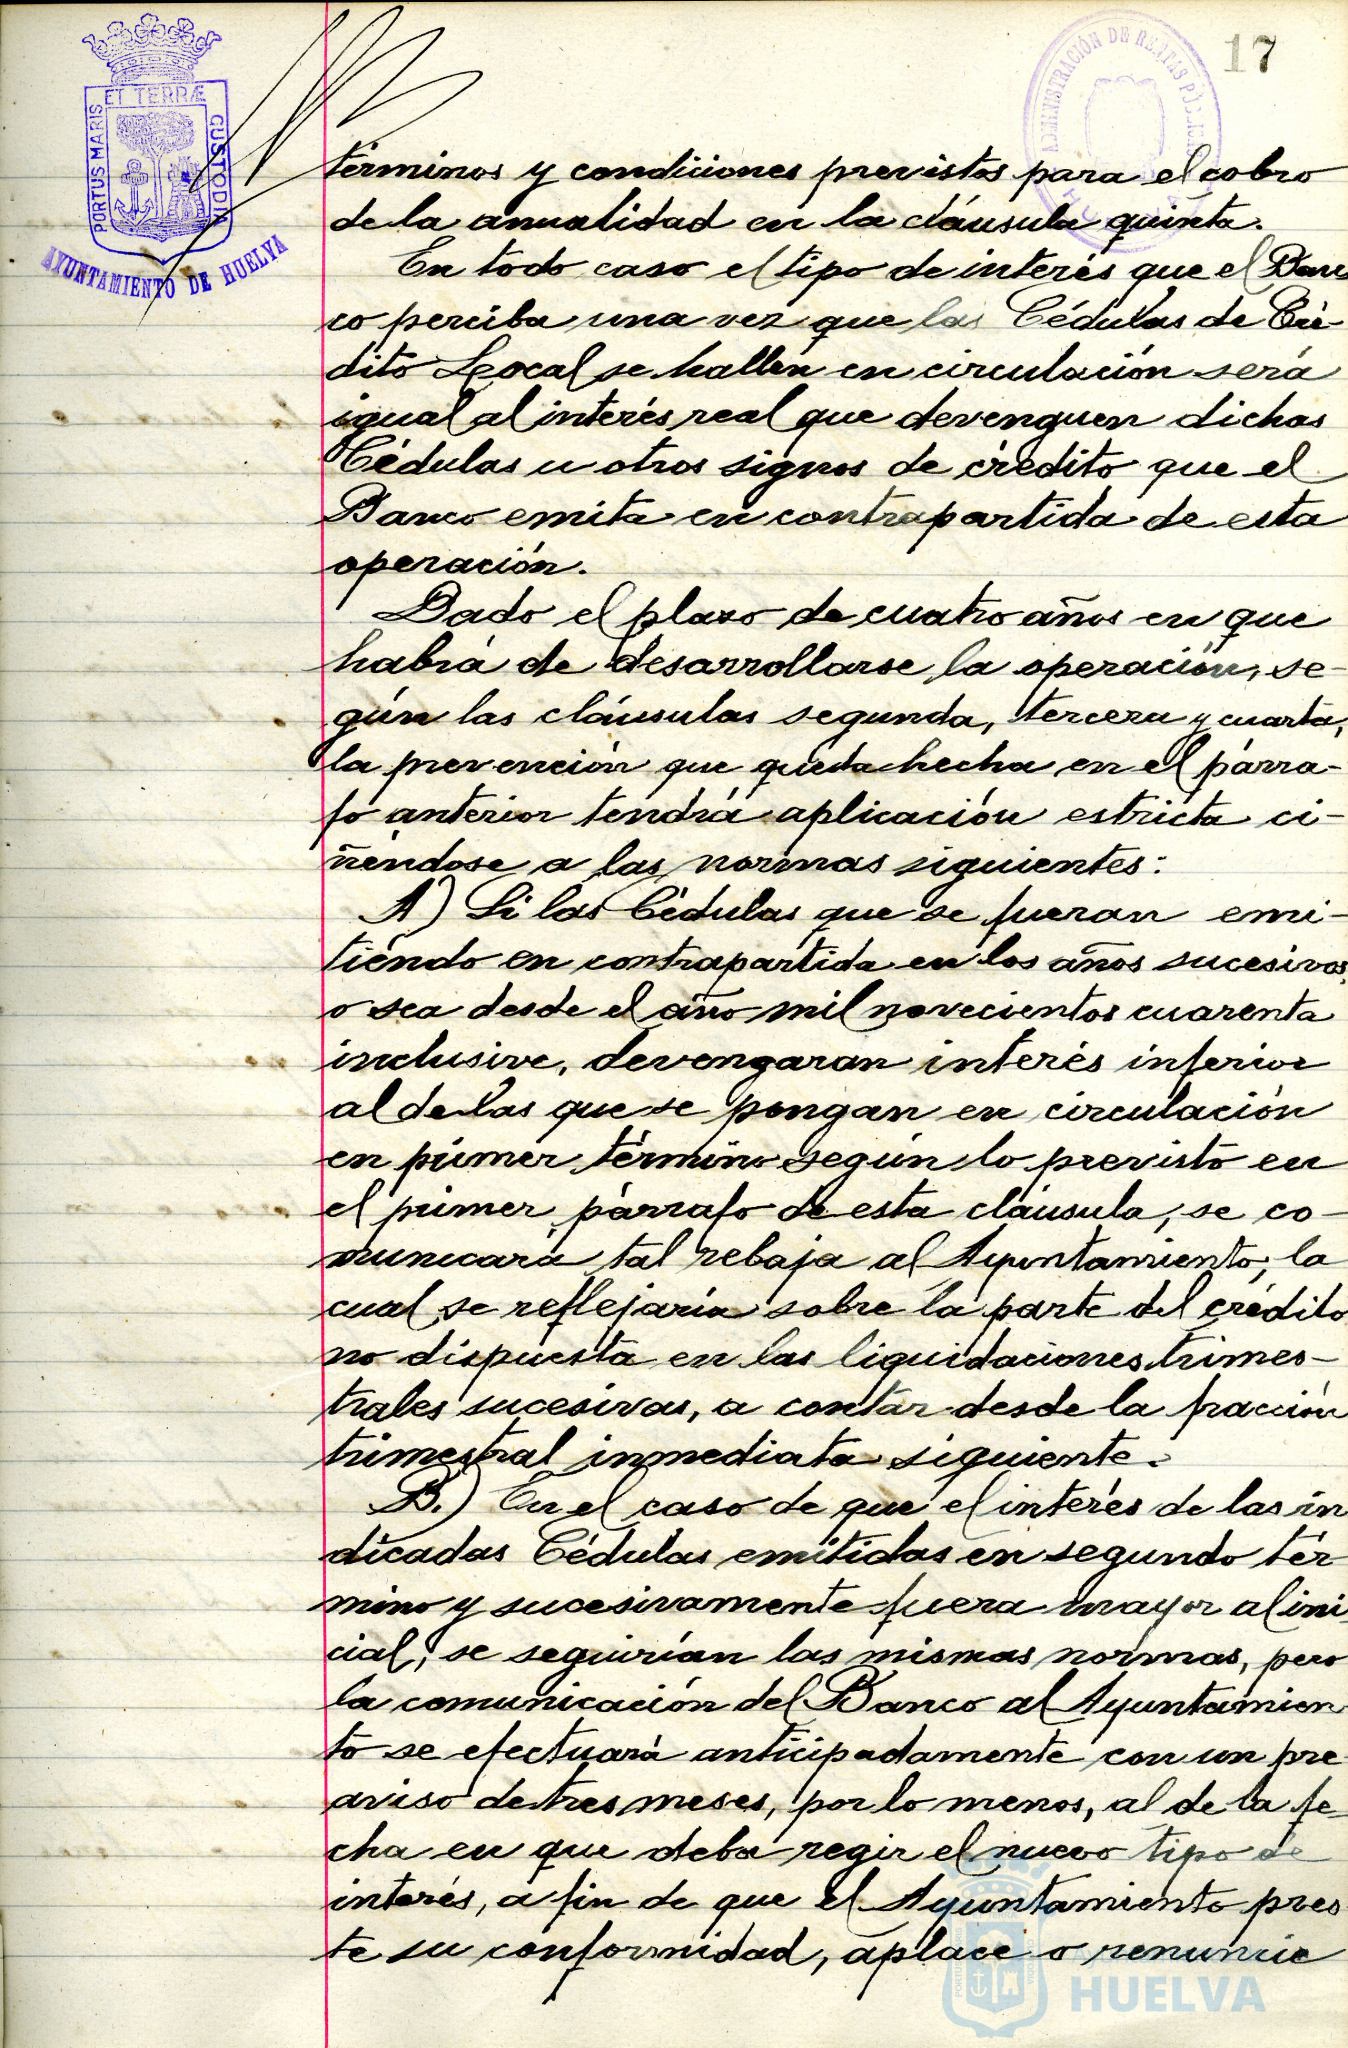 17
ET TERRÆ
PORTUS MARIS
CUSTODIA
AYUNTAMIENTO DE HUELVA
ADMINISTRACIÓN DE RENTAS PÚBLICAS
términos y condiciones previstos para el cobro
de la anualidad en la cláusula quinta.
En todo caso el tipo de interés que el Ban
co perciba una vez que las Cédulas de Cré-
dito Local se hallen en circulación será
igual al interés real que devenguen dichas
Cédulas u otros signos de crédito que el
Banco emita en contrapartida de esta
operación.
Dado el plazo de cuatro años en que
habrá de desarrollarse la operación, se-
gún las cláusulas segunda, tercera y cuarta,
la prevención que queda hecha en el párra-
fo anterior tendrá aplicación estricta ci-
ñéndose a las normas siguientes:
A) Si las Cédulas que se fueran emi-
tiendo en contrapartida en los años sucesivos,
o sea desde el año mil novecientos cuarenta
inclusive, devengaran interés inferior
al de las que se pongan en circulación
en primer término según lo previsto en
el primer párrafo de esta cláusula, se co-
municará tal rebaja al Ayuntamiento, la
cual se reflejaría sobre la parte del crédito
no dispuesta en las liquidaciones trimes-
trales sucesivas, a contar desde la fracción
trimestral inmediata siguiente.
B.) En el caso de que el interés de las in
dicadas Cédulas emitidas en segundo tér
mino y sucesivamente fuera mayor al ini
cial, se seguirían las mismas normas, pero
la comunicación del Banco al Ayuntamien
to se efectuará anticipadamente con un pre
aviso de tres meses, por lo menos, al de la fe-
cha en que deba regir el nuevo tipo de
interés, a fin de que el Ayuntamiento pres
te su conformidad, aplace o renuncie
HUELVA